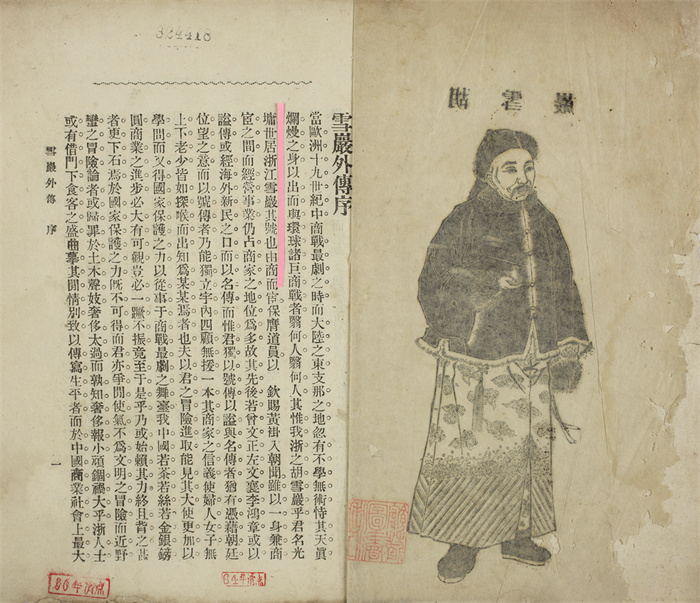 胡雪巖
雪巖外傳序
當歐洲十九世紀中商戰最劇之時而大陸之東支那之地忽有不學無術恃其天眞
爛熳之身以出而與環球諸巨商戰者翳何人翳何人其惟我浙之胡雪巖乎君名光
墉世居浙江雪巖其號也由商而宦保膺道員以 欽賜黃褂入朝聞雖以一身兼商
宦之間而經營事業仍占商家之地位爲多故其先後若曾文正左文襄李鴻章或以
諡傳或經海外新民之口而以名傳而惟君獨以號傳以諡與名傳者猶有憑藉朝廷
位望之意而以號傳者乃能獨立宇內四顧無援一本其商家之信義使婦人女子無
上下老少皆如探喉而出知爲某某焉者也夫以君之冒險進取能見其大使更加以
學問而又得國家保護之力以從事于商戰最劇之舞臺我中國若茶若絲若金銀鎊
圓商業之進步必大有可觀豈必一蹶不振竟至于是乎乃或始賴其力終且背之甚
者更下石焉於國家保護之力旣不可得而君亦使氣不爲文明之冒險而近野
蠻之冒險論者或歸罪於土木聲妓奢侈太過而孰知奢侈報小頑錮禍大乎浙人士
或有借門下食客之盛曲摹其閒情別致以傳寫生平者而於中國商業社會上最大
雪巖外傳 序 一